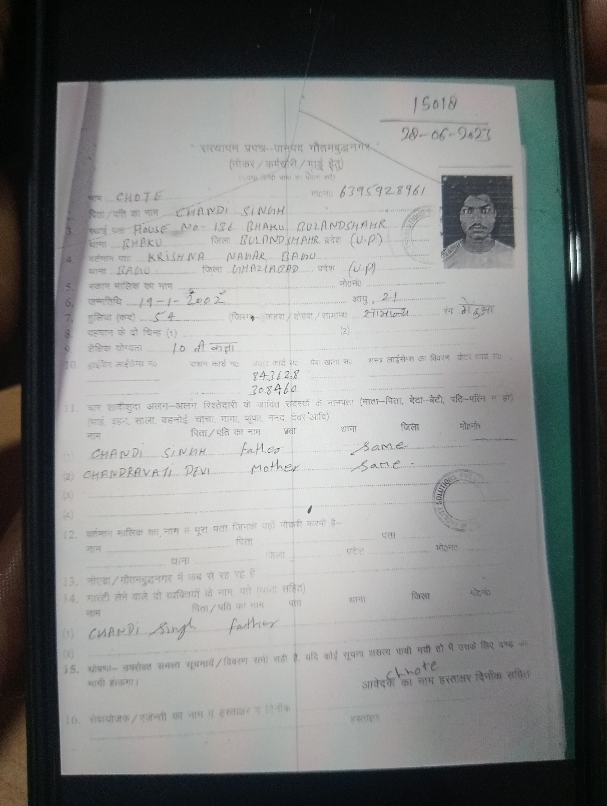 15018
28-06-2023
सत्यापन प्रपत्र-जनपद गौतमबुद्धनगर
(नौकर/कर्मचारी/गार्ड हेतु)
नाम CHOTE मो0नं0 6395928961
पिता/पति का नाम CHANDI SINGH
3. स्थाई पता HOUSE No-136 BHAKU BULANDSHAHR
थाना BHAKU जिला BULANDSHAHR प्रदेश (U.P)
4. वर्तमान पता KRISHNA NAHAR BAHU
थाना जिला GHAZIABAD प्रदेश (U.P)
5. मकान मालिक का नाम मो0नं0
6. जन्मतिथि 19-1-2002 आयु 21
7. हुलिया (कद) 54 सामान्य रंग गेहुआ
8. पहचान के दो चिन्ह (1) (2)
9. शैक्षिक योग्यता 10 वी कक्षा
10. ड्राईविंग लाईसेन्स नं0 राशन कार्ड नं0 आधार कार्ड नं0
843628
308460
11.
नाम पिता/पति का नाम पता थाना जिला मो0नं0
(1) CHANDI SINGH father same
(2) CHANDRAVATI DEVI Mother Same
(3)
(4)
12. वर्तमान मालिक का नाम व पूरा पता जिनके यहाँ नौकरी करनी है-
नाम पिता पता
थाना जिला प्रदेश मो0नं0
13. नोएडा/गौतमबुद्धनगर में कब से रह रहे है
14. गारन्टी लेने वाले दो व्यक्तियों के नाम, पते (थाना सहित)
नाम पिता/पति का नाम पता थाना जिला मो0नं0
(1) CHANDI Singh father
15. घोषणा- उपरोक्त समस्त सूचनायें/विवरण सभी सही है, यदि कोई सूचना असत्य पायी गयी तो मै उसके लिए दण्ड का
भागी होऊंगा।
chhote
आवेदक का नाम हस्ताक्षर दिनाँक सहित
16. सेवायोजक/एजेन्सी का नाम व हस्ताक्षर व दिनाँक हस्ताक्षर